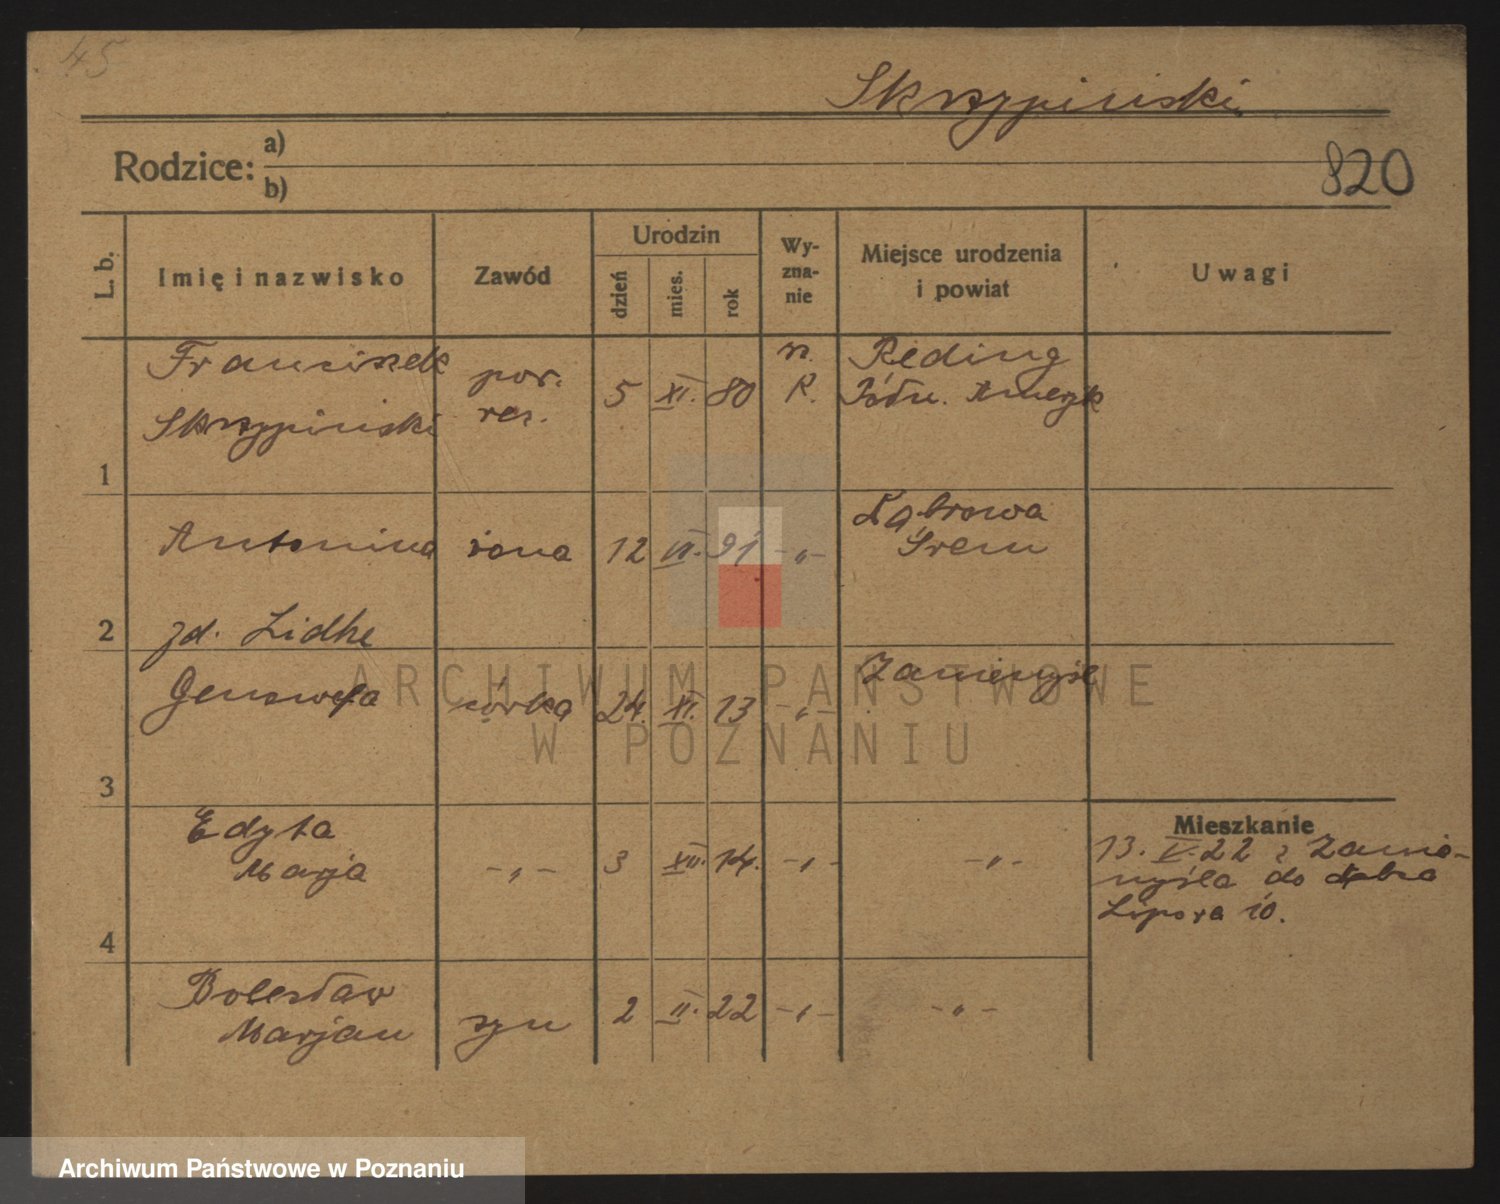 45
Skrzypiński
Rodzice: a)
b)
820
L. b.
Imię i nazwisko
Zawód
Urodzin
dzień
mies.
rok
Wy-
zna-
nie
Miejsce urodzenia
i powiat
Uwagi
1
Franciszek
Skrzypiński
por.
rez.
5 XI. 80
r.
K.
Reding
Półn. Ameryk
2
Antonina
zd. Lidke
żona
12 VI. 91
-„-
Dąbrowa
Śrem
3
Genowefa
córka
24. XI. 13
-„-
Zaniemyśl
4
Edyta
Marja
-„-
3 XII. 14.
-„-
-„-
Bolesław
Marjan
syn
2 II. 22
-„-
-„-
Mieszkanie
13. V. 22 z Zanie-
myśla do
10.
ARCHIWUM PAŃSTWOWE
W POZNANIU
Archiwum Państwowe w Poznaniu